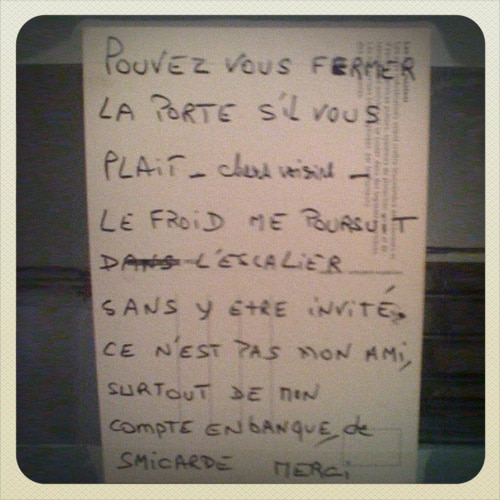 POUVEZ VOUS FERMER
LA PORTE S'iL VOUS
PLAiT _ chers voisins _
LE FROiD ME POURSUiT
DANS L'ESCALiER
SANS Y ETRE iNViTÉ,
CE N'EST PAS MON AMi,
SURTOUT DE MON
COMPTE EN bANQUE, de
SMiCARDE MERCi